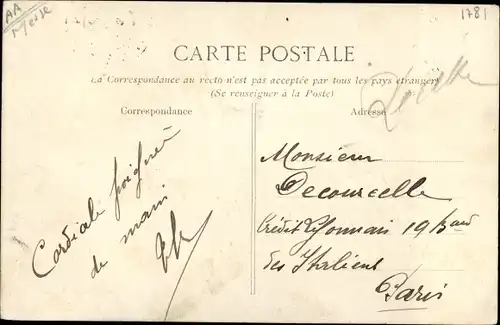 AA
Meise
1781
CARTE POSTALE
La Correspondance au recto n'est pas acceptée par tous les pays étrangers
(Se renseigner à la Poste)
Correspondance
Adresse
Cordiale poignée
de main
Monsieur
Decourcelle
Crédit Lyonnais 19 Bard
des Italiens
Paris